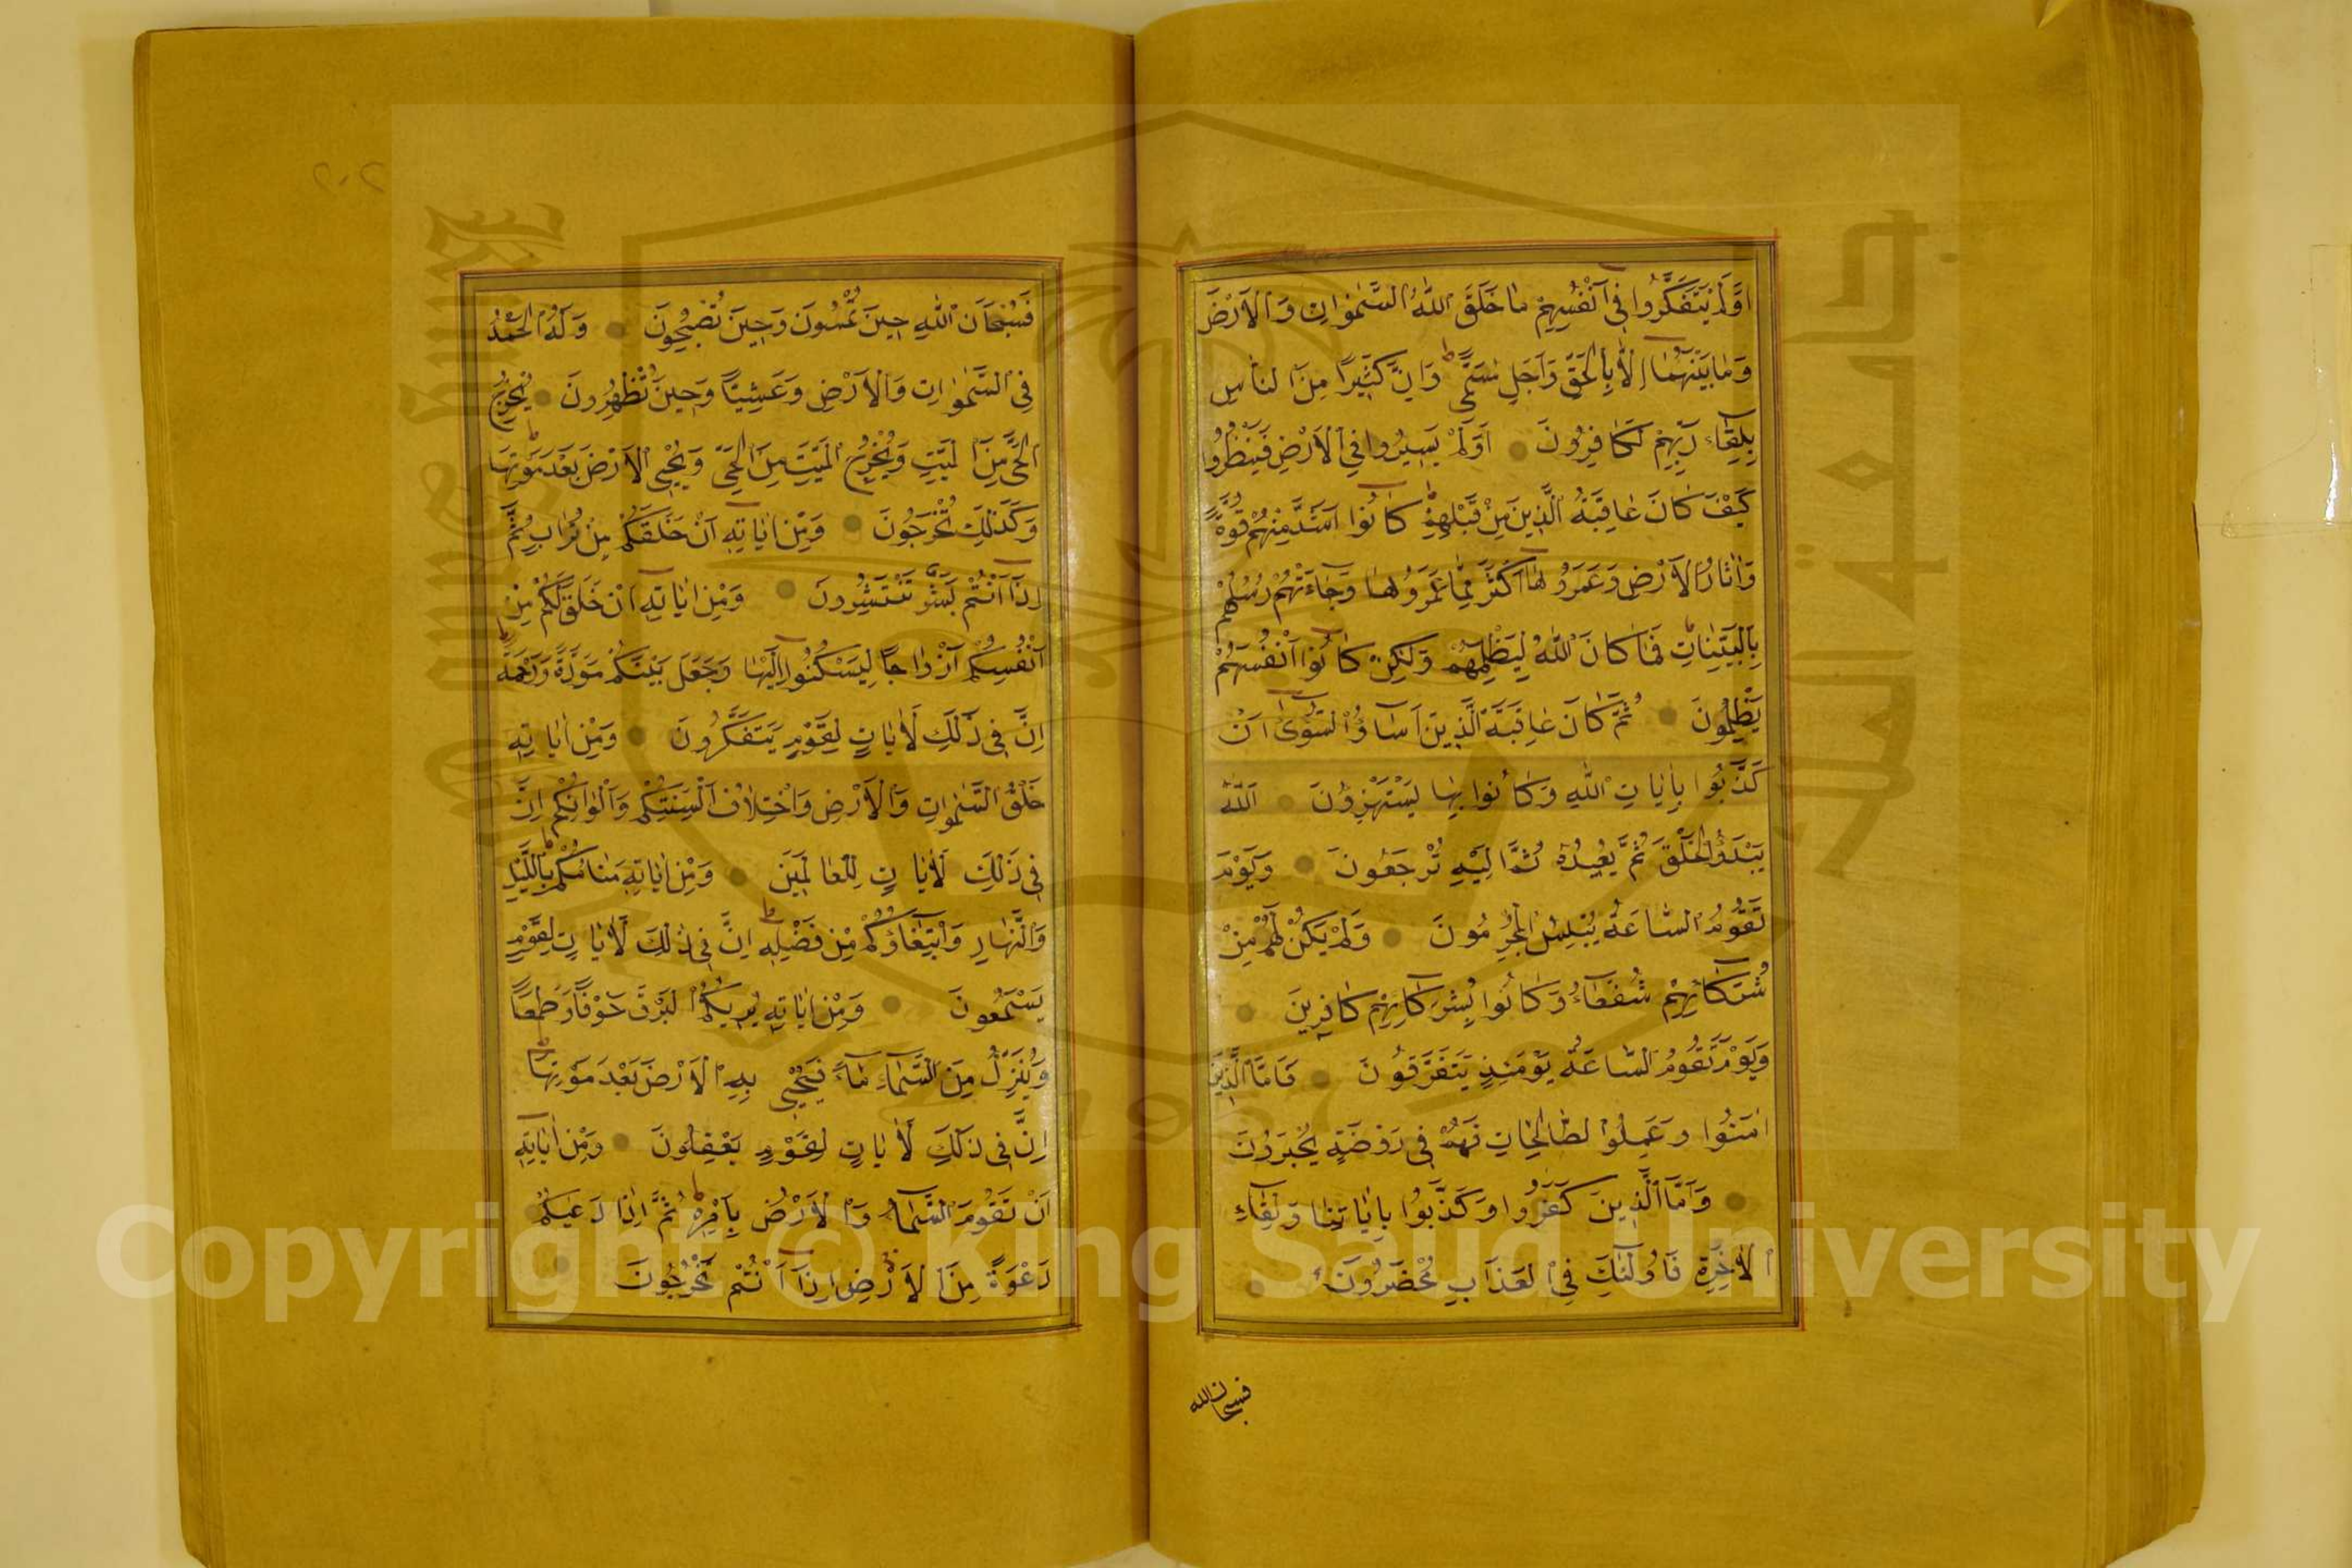 اَوَلَمْ يَتَفَكَّرُوا فِي اَنْفُسِهِمْ مَا خَلَقَ اللّٰهُ السَّمٰوَاتِ وَالْاَرْضَ
وَمَا بَيْنَهُمَا اِلَّا بِالْحَقِّ وَاَجَلٍ مُسَمًّى ط وَاِنَّ كَثِيرًا مِنَ النَّاسِ
بِلِقَاۤءِ رَبِّهِمْ لَكَافِرُونَ اَوَلَمْ يَسِيرُوا فِي الْاَرْضِ فَيَنْظُرُوا
كَيْفَ كَانَ عَاقِبَةُ الَّذِينَ مِنْ قَبْلِهِمْ ط كَانُوا اَشَدَّ مِنْهُمْ قُوَّةً
وَاَثَارُوا الْاَرْضَ وَعَمَرُوهَا اَكْثَرَ مِمَّا عَمَرُوهَا وَجَاۤءَتْهُمْ رُسُلُهُمْ
بِالْبَيِّنَاتِ ط فَمَا كَانَ اللّٰهُ لِيَظْلِمَهُمْ وَلٰكِنْ كَانُوا اَنْفُسَهُمْ
يَظْلِمُونَ ثُمَّ كَانَ عَاقِبَةَ الَّذِينَ اَسَاۤؤُا السُّوۤاٰى اَنْ
كَذَّبُوا بِاٰيَاتِ اللّٰهِ وَكَانُوا بِهَا يَسْتَهْزِؤُنَ اَللّٰهُ
يَبْدَؤُا الْخَلْقَ ثُمَّ يُعِيدُهُ ثُمَّ اِلَيْهِ تُرْجَعُونَ وَيَوْمَ
تَقُومُ السَّاعَةُ يُبْلِسُ الْمُجْرِمُونَ وَلَمْ يَكُنْ لَهُمْ مِنْ
شُرَكَاۤئِهِمْ شُفَعَاۤءُ وَكَانُوا بِشُرَكَاۤئِهِمْ كَافِرِينَ
وَيَوْمَ تَقُومُ السَّاعَةُ يَوْمَئِذٍ يَتَفَرَّقُونَ فَاَمَّا الَّذِينَ
اٰمَنُوا وَعَمِلُوا الصَّالِحَاتِ فَهُمْ فِي رَوْضَةٍ يُحْبَرُونَ
وَاَمَّا الَّذِينَ كَفَرُوا وَكَذَّبُوا بِاٰيَاتِنَا وَلِقَاۤءِ
الْاٰخِرَةِ فَاُولٰۤئِكَ فِي الْعَذَابِ مُحْضَرُونَ
فسبحان الله
٢٠٢
فَسُبْحَانَ اللّٰهِ حِينَ تُمْسُونَ وَحِينَ تُصْبِحُونَ وَلَهُ الْحَمْدُ
فِي السَّمٰوَاتِ وَالْاَرْضِ وَعَشِيًّا وَحِينَ تُظْهِرُونَ يُخْرِجُ
الْحَيَّ مِنَ الْمَيِّتِ وَيُخْرِجُ الْمَيِّتَ مِنَ الْحَيِّ وَيُحْيِي الْاَرْضَ بَعْدَ مَوْتِهَا ط
وَكَذٰلِكَ تُخْرَجُونَ وَمِنْ اٰيَاتِهِ اَنْ خَلَقَكُمْ مِنْ تُرَابٍ ثُمَّ
اِذَا اَنْتُمْ بَشَرٌ تَنْتَشِرُونَ وَمِنْ اٰيَاتِهِ اَنْ خَلَقَ لَكُمْ مِنْ
اَنْفُسِكُمْ اَزْوَاجًا لِتَسْكُنُوا اِلَيْهَا وَجَعَلَ بَيْنَكُمْ مَوَدَّةً وَرَحْمَةً ط
اِنَّ فِي ذٰلِكَ لَاٰيَاتٍ لِقَوْمٍ يَتَفَكَّرُونَ وَمِنْ اٰيَاتِهِ
خَلْقُ السَّمٰوَاتِ وَالْاَرْضِ وَاخْتِلَافُ اَلْسِنَتِكُمْ وَاَلْوَانِكُمْ ط اِنَّ
فِي ذٰلِكَ لَاٰيَاتٍ لِلْعَالَمِينَ وَمِنْ اٰيَاتِهِ مَنَامُكُمْ بِاللَّيْلِ
وَالنَّهَارِ وَابْتِغَاۤؤُكُمْ مِنْ فَضْلِهِ ط اِنَّ فِي ذٰلِكَ لَاٰيَاتٍ لِقَوْمٍ
يَسْمَعُونَ وَمِنْ اٰيَاتِهِ يُرِيكُمُ الْبَرْقَ خَوْفًا وَطَمَعًا
وَيُنَزِّلُ مِنَ السَّمَاۤءِ مَاۤءً فَيُحْيِي بِهِ الْاَرْضَ بَعْدَ مَوْتِهَا ط
اِنَّ فِي ذٰلِكَ لَاٰيَاتٍ لِقَوْمٍ يَعْقِلُونَ وَمِنْ اٰيَاتِهِ
اَنْ تَقُومَ السَّمَاۤءُ وَالْاَرْضُ بِاَمْرِهِ ط ثُمَّ اِذَا دَعَاكُمْ
دَعْوَةً مِنَ الْاَرْضِ اِذَا اَنْتُمْ تَخْرُجُونَ
جامعة الملك سعود
King Saud University
1957
Copyright © King Saud University